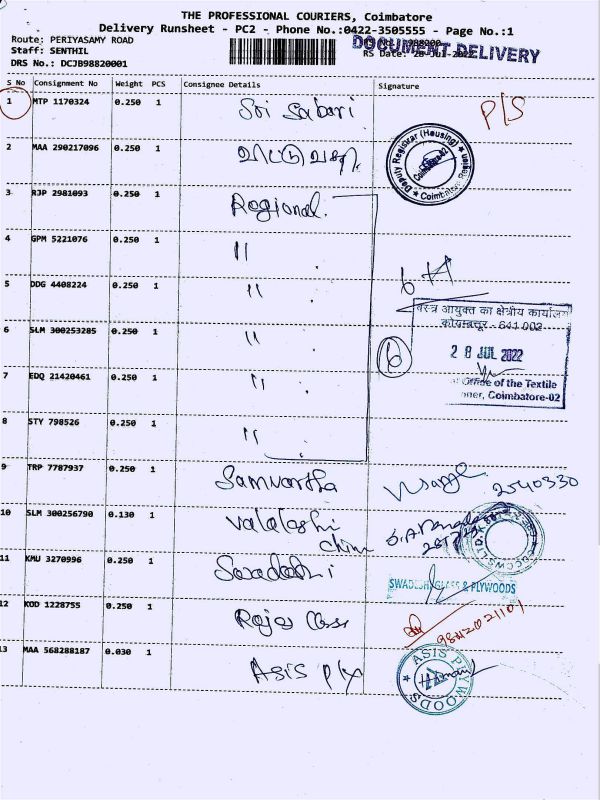 THE PROFESSIONAL COURIERS, Coimbatore
Delivery Runsheet - PC2 - Phone No.:0422-3505555 - Page No.:1
Route: PERIYASAMY ROAD
Staff: SENTHIL
DRS No.: DCJB98820001
DOCUMENT DELIVERY
RS Date: 28-Jul-2022
S No Consignment No Weight PCS Consignee Details Signature
1 MTP 1170324 0.250 1 Sri Sabari P/S
2 MAA 290217096 0.250 1
Deputy Registrar (Housing) Coimbatore
Coimbatore-02
3 RJP 2981093 0.250 1 Regional
4 GPM 5221076 0.250 1 "
5 DDG 4408224 0.250 1 "
6 SLM 300253285 0.250 1 "
वस्त्र आयुक्त का क्षेत्रीय कार्यालय
कोयम्बत्तूर - 641 002
28 JUL 2022
Office of the Textile
Coimbatore-02
6
7 EDQ 21420461 0.250 1 "
8 STY 798526 0.250 1 "
9 TRP 7787937 0.250 1 Samvartha 2540330
10 SLM 300256790 0.130 1
11 KMU 3270996 0.250 1 Swadeshi
SWADESHI GLASS & PLYWOODS
12 KOD 1228755 0.250 1 Raja
13 MAA 568288187 0.030 1 Asis Ply
ASIS PLYWOODS